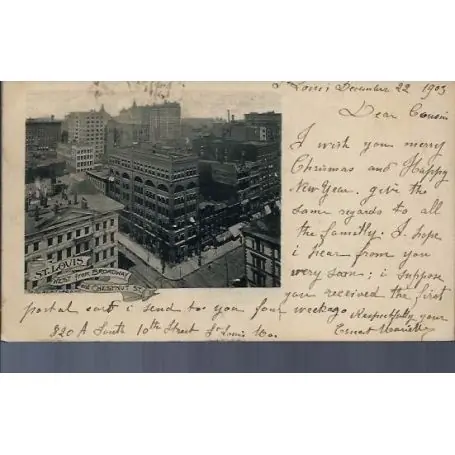 St Louis December 22 1903
Dear Cousin
I wish you merry
Chrismas and Happy
New Year. give the
same regards to all
the familly. I hope
i hear from you
very soon; i suppose
you received the first
postal card i send to you four weeks ago
Respectfully your
Ernest
920 A South 10th Street St Louis Mo.
ST. LOUIS
WEST FROM BROADWAY
CHESTNUT ST.